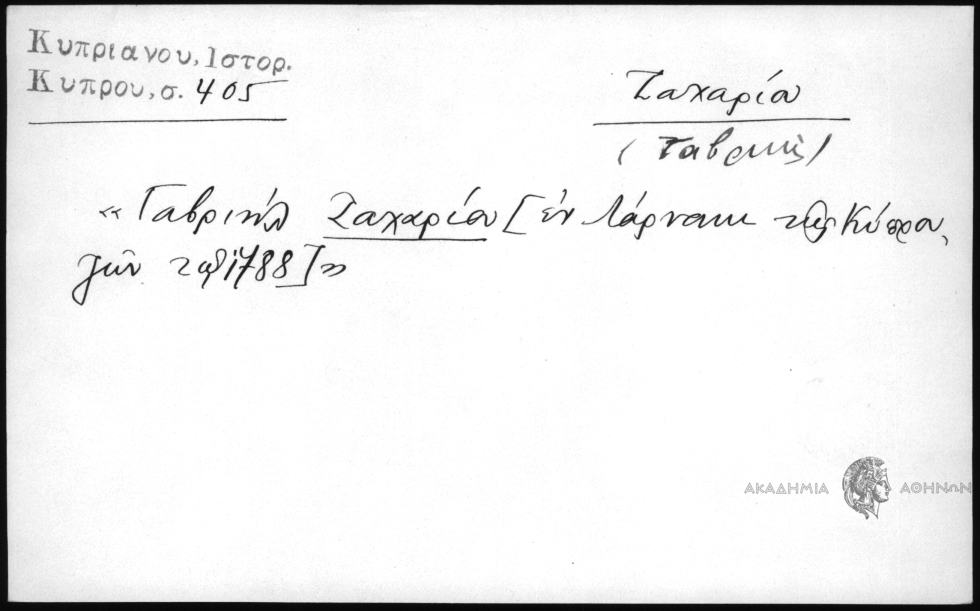 Κυπριανου, Ιστορ.
Κυπρου, σ. 405
Ζαχαρίου
(Γαβριήλ)
« Γαβριήλ Ζαχαρίου [ἐν Λάρνακι τῆς Κύπρου,
1788]»
ΑΚΑΔΗΜΙΑ ΑΘΗΝΩΝ